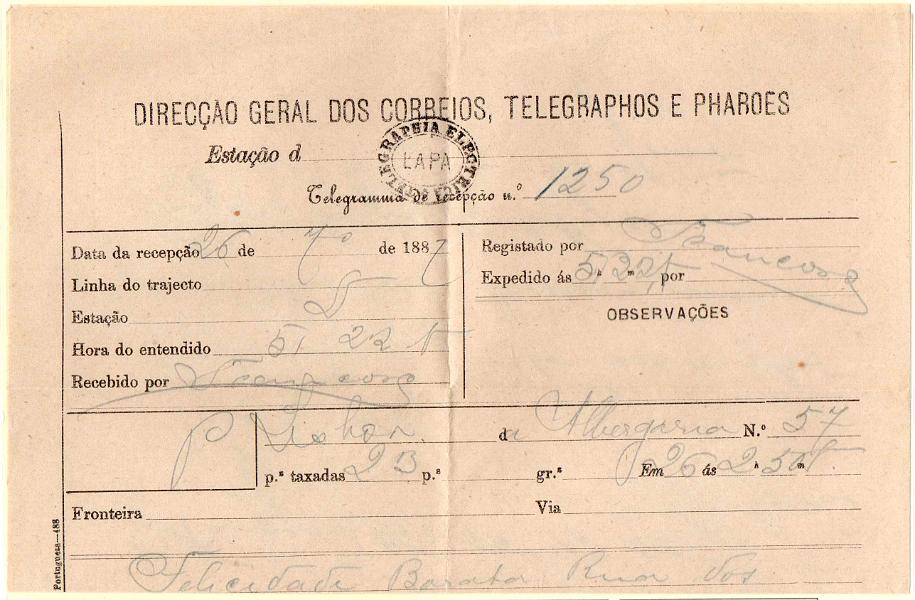 DIRECÇÃO GERAL DOS CORREIOS, TELEGRAPHOS E PHAROES
TELEGRAPHIA ELECTRICA
LAPA
Estação d
Telegramma de recepção n.º 1250
Data da recepção 26 de 7º de 1887
Linha do trajecto
Estação
Hora do entendido 5, 22 t
Recebido por
Registado por
Expedido ás 5 h 22 m t, por
OBSERVAÇÕES
P Lisboa de Albergaria N.º 57
p.ªˢ taxadas 23 p.ª gr.ª Em 26 ás 2 h 50 m t.
Fronteira Via
Felicidade Barata Rua dos
Portuguesa—188